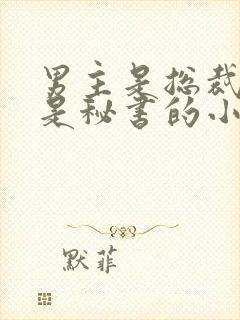 男主是总裁
是秘书的小
默菲